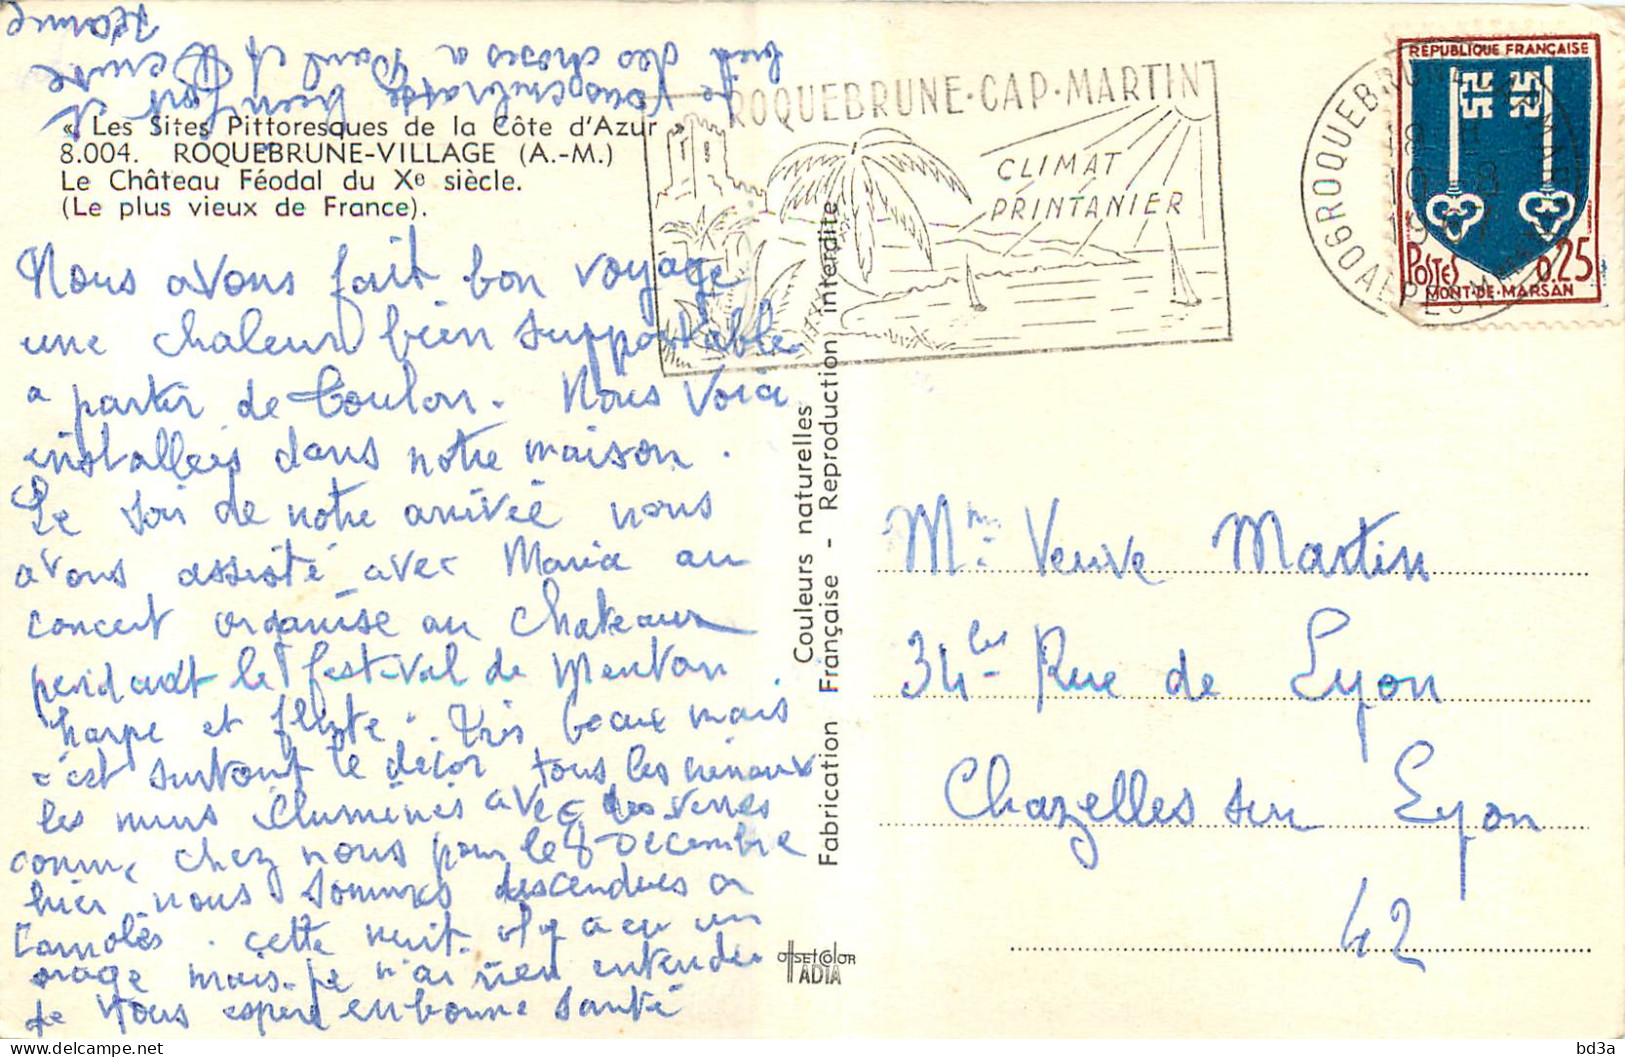 « Les Sites Pittoresques de la Côte d'Azur »
8.004. ROQUEBRUNE-VILLAGE (A.-M.)
Le Château Féodal du Xe siècle.
(Le plus vieux de France).
Nous avons fait bon voyage
une chaleur bien supportable
a partir de Toulon. Nous voici
installées dans notre maison.
Le soir de notre arrivée nous
avons assisté avec Maria au
concert organisé au Chateau
pendant le festival de Menton.
harpe et flute. Très beau mais
c'est surtout le décor tous les créneaux
les murs illuminés avec des verres
comme chez nous pour le 8 Décembre
hier nous sommes descendues a
Carnolès. cette nuit il y a eu un
orage mais je n'ai rien entendu
Je vous espère en bonne santé
Je vous embrasse bien fort et
bien des choses a Paul et
Jeanne
ROQUEBRUNE·CAP·MARTIN
CLIMAT
PRINTANIER
ROQUEBRUNE CAP MARTIN
18 H
10 - 8
19
06 ALPES MMES
REPUBLIQUE FRANÇAISE
POSTES 0,25
MONT-DE-MARSAN
Couleurs naturelles
Fabrication Française - Reproduction interdite
OFFSETCOLOR
ADIA
Mme Veuve Martin
34 bis Rue de Lyon
Chazelles sur Lyon
42
bd3a